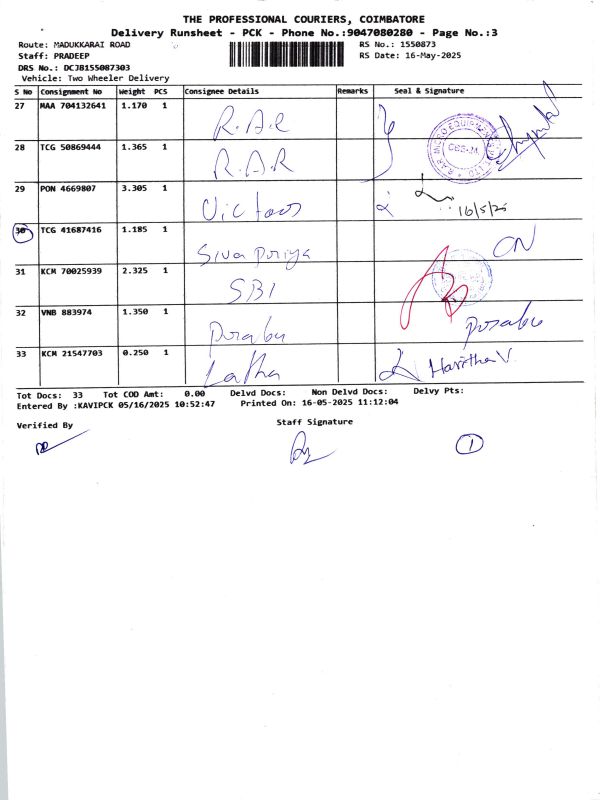 THE PROFESSIONAL COURIERS, COIMBATORE
Delivery Runsheet - PCK - Phone No.:9047080280 - Page No.:3
Route: MADUKKARAI ROAD RS No.: 1550873
Staff: PRADEEP RS Date: 16-May-2025
DRS No.: DCJB155087303
Vehicle: Two Wheeler Delivery
S No Consignment No Weight PCS Consignee Details Remarks Seal & Signature
27 MAA 704132641 1.170 1 R.A.R
28 TCG 50869444 1.365 1 R.A.R
29 PON 4669807 3.305 1 Victors 16/5/25
30 TCG 41687416 1.185 1 Siva Poriya CN
31 KCM 70025939 2.325 1 SBI
32 VNB 883974 1.350 1 Porabu Porabu
33 KCM 21547703 0.250 1 Latha Haritha V
Tot Docs: 33 Tot COD Amt: 0.00 Delvd Docs: Non Delvd Docs: Delvy Pts:
Entered By :KAVIPCK 05/16/2025 10:52:47 Printed On: 16-05-2025 11:12:04
Verified By Staff Signature
1